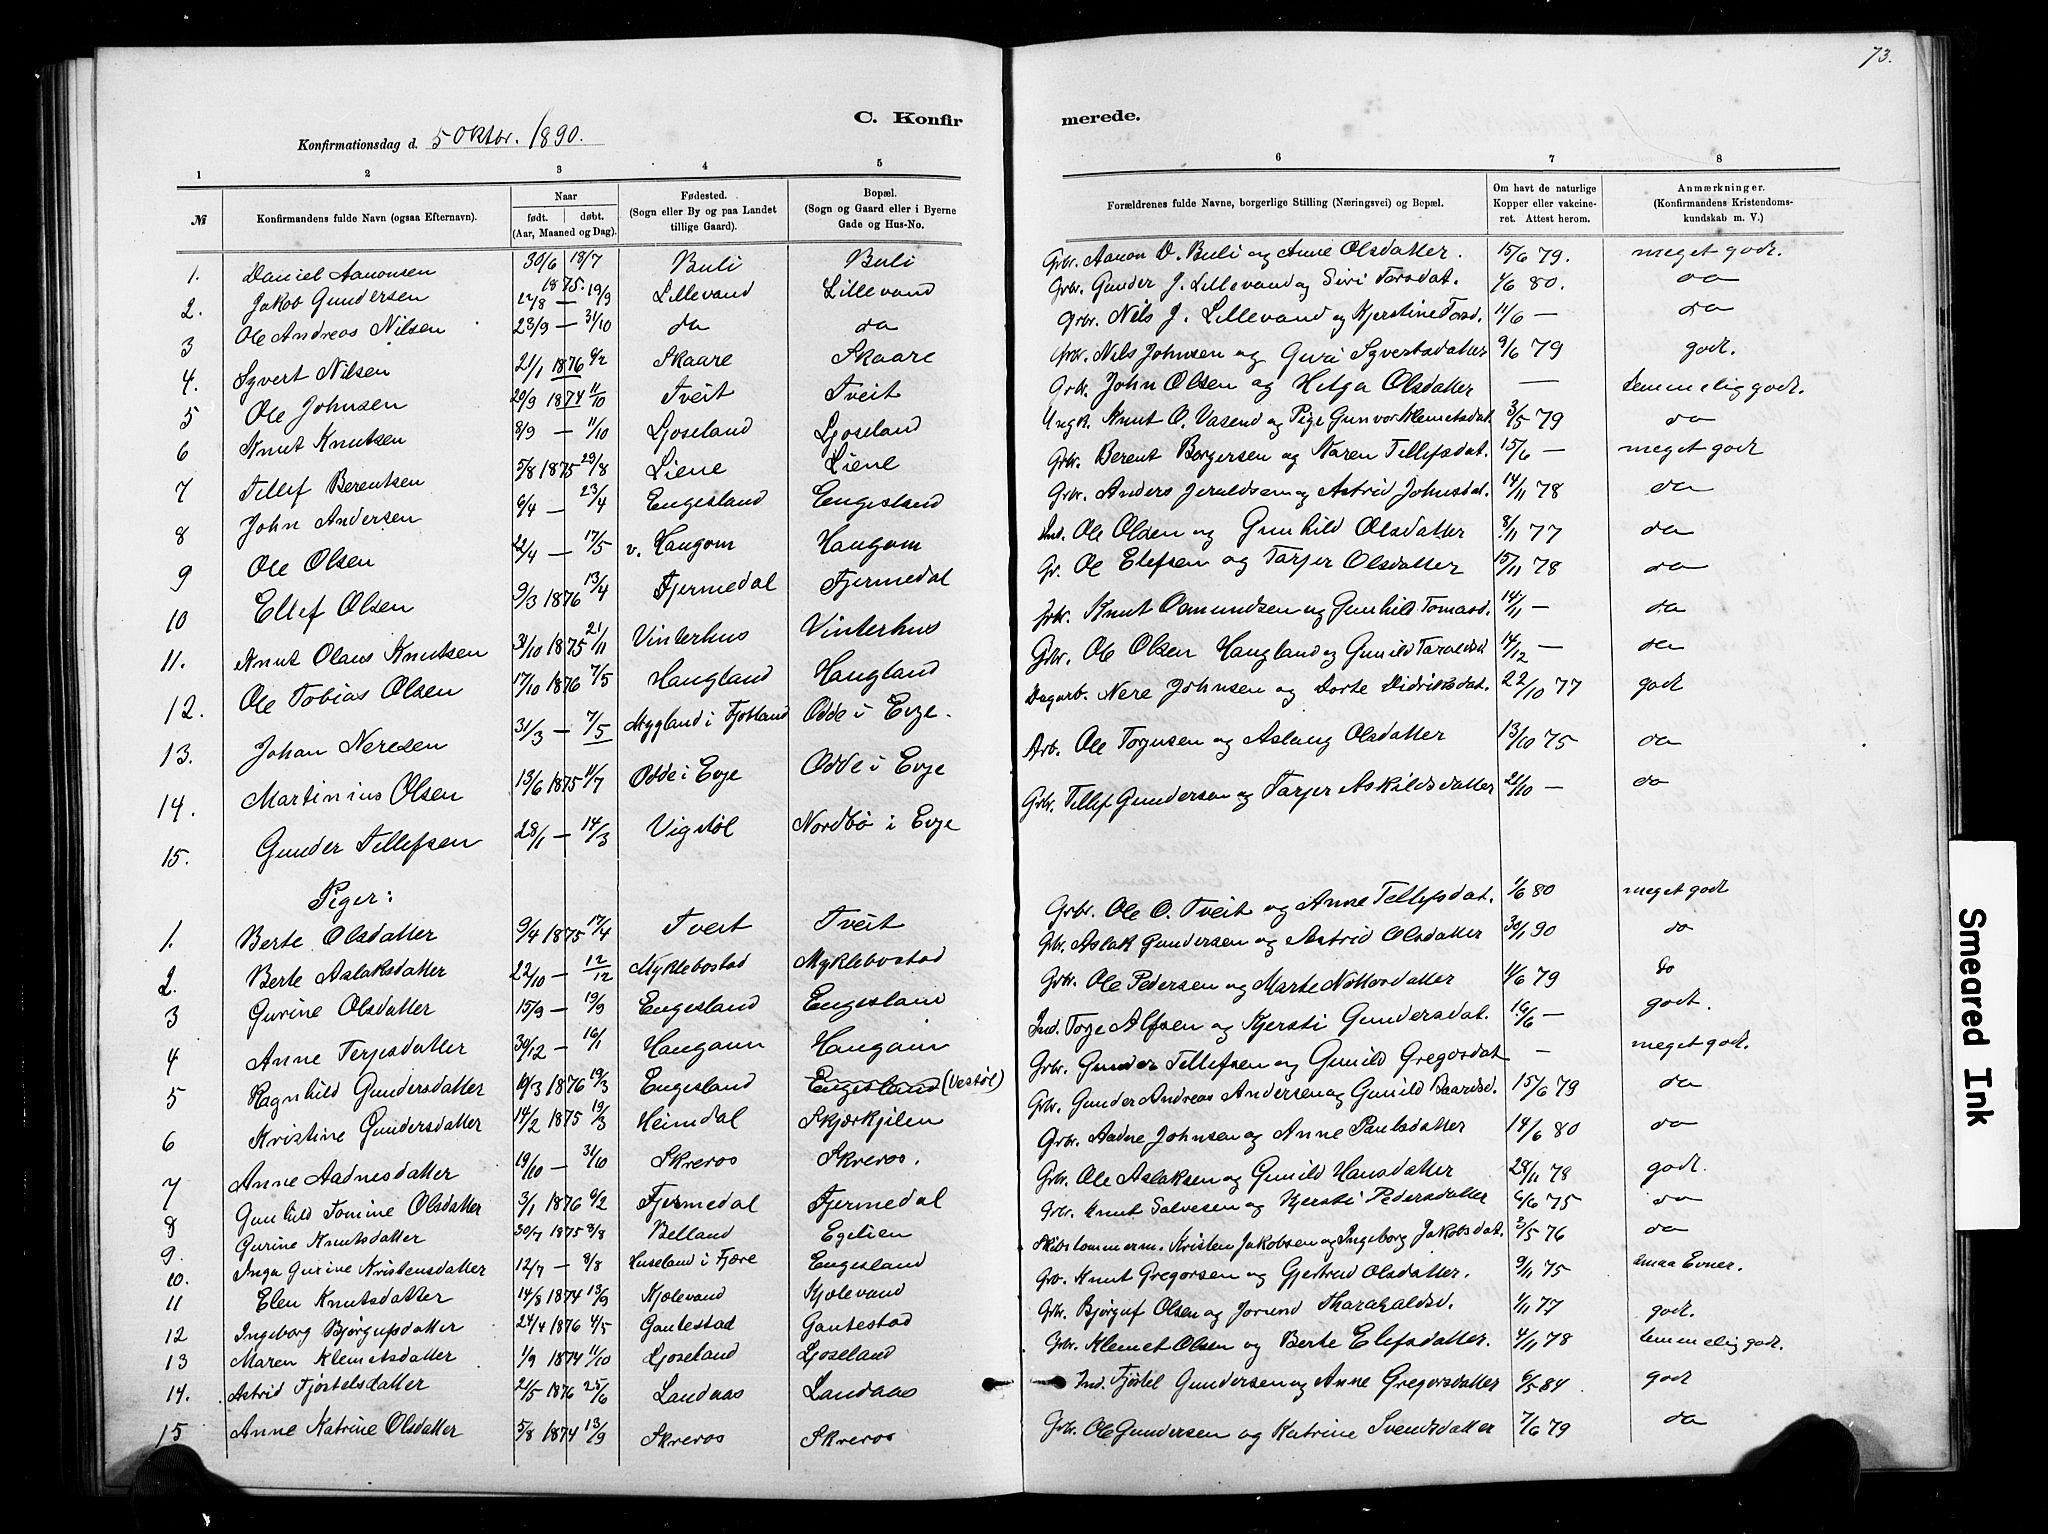 73.
C. Konfirmerede.
Konfirmationsdag d. 5 Oktbr. 1890.
1 2 3 4 5 6 7 8
№ Konfirmandens fulde Navn (ogsaa Efternavn). Naar født. døbt. (Aar, Maaned og Dag). Fødested. (Sogn eller By og paa Landet tillige Gaard). Bopæl. (Sogn og Gaard eller i Byerne Gade og Hus-No. Forældrenes fulde Navne, borgerlige Stilling (Næringsvei) og Bopæl. Om havt de naturlige Kopper eller vakcineret. Attest herom. Anmærkninger. (Konfirmandens Kristendomskundskab m. V.)
1. Daniel Aanonsen 30/6 18/7 1875. Buli Buli Grbr. Aanon D. Buli og Anne Olsdatter. 15/6 79. meget godt.
2. Jakob Gundersen 27/8 — 19/9 Lillevand Lillevand Grbr. Gunder J. Lillevand og Siri Torsdat. 1/6 80. do
3 Ole Andreas Nilsen 23/9 — 31/10 do do Grbr. Nils J. Lillevand og Kjerstine Torsd. 11/6 — do
4. Syvert Nilsen 21/1 1876 6/2 Skaare Skaare Grbr. Nils Johnsen og Guri Syvertsdatter 9/6 79 godt.
5 Ole Johnsen 20/9 1874 11/10 Tveit Tveit Grbr. John Olsen og Helga Olsdatter — temmelig godt.
6 Knut Knutsen 8/9 — 11/10 Ljoseland Ljoseland Ungk. Knut O. Vasend og Pige Gunvor Klemetsdat. 3/5 79 do
7 Tellef Berentsen 5/8 1875 29/8 Liene Liene Grbr. Berent Borgersen og Karen Tellefsdat. 15/6 — meget godt
8 John Andersen 6/4 — 23/4 Engesland Engesland Grbr. Anders Jeraldsen og Astrid Johnsdat. 14/11 78 do
9 Ole Olsen 22/4 — 17/5 v. Haugom Haugom Ind. Ole Olsen og Gunhild Olsdatter 8/11 77 do
10 Ellef Olsen 9/3 1876 13/4 Fjermedal Fjermedal Gr. Ole Elefsen og Tarjer Olsdatter 15/11 78 do
11. Knut Olaus Knutsen 31/10 1875 21/11 Vinterhus Vinterhus Grbr. Knut Osmundsen og Gunhild Tomasd. 14/11 — do
12. Ole Tobias Olsen 17/10 1876 7/5 Haugland Haugland Grbr. Ole Olsen Haugland og Gunild Taraldsd 14/12 — do
13. Johan Neresen 31/3 — 7/5 Mygland i Fjotland Odde i Evje. Dagarb. Nere Johnsen og Dorte Didriksdat. 22/10 77 godt
14. Martinius Olsen 13/6 1875 11/7 Odde i Evje Odde i Evje Arb. Ole Torjusen og Aslaug Olsdatter 13/10 75 do
15. Gunder Tellefsen 28/1 — 14/3 Vigstøl Nordbø i Evje Grbr. Tellef Gundersen og Tarjer Askildsdatter 21/10 — do
Piger:
1. Berte Olsdatter 9/4 1875 17/4 Tveit Tveit Grbr. Ole O. Tveit og Anne Tellefsdat. 1/6 80 meget godt
2. Berte Aslaksdatter 22/10 — 12/12 Myklebostad Myklebostad Grbr. Aslak Gundersen og Astrid Olsdatter 30/1 90 do
3 Gurine Olsdatter 15/9 — 19/9 Engesland Engesland Grbr. Ole Pedersen og Marte Nottovsdatter 11/6 79 do
4 Anne Terjesdatter 30/12 — 16/1 Haugann Haugann Ind. Torje Alfsen og Kjersti Gundersdat. 16/6 — godt.
5 Ragnhild Gundersdatter 10/3 1876 19/3 Engesland Engesland (Vestøl) Grbr. Gunder Tellefsen og Gunild Gregorsdat — meget godt.
6 Kristine Gundersdatter 14/2 1875 19/3 Heimdal Skjærkjilen Grbr. Gunder Andreas Andersen og Gunild Baardsd. 15/6 79 do
7 Anne Aadnesdatter 19/10 — 31/10 Skreros Skreros. Grbr. Aadne Johnsen og Anne Paulsdatter 14/6 80 do
8 Gunhild Tomine Olsdatter 3/1 1876 6/2 Fjermedal Fjermedal Grbr. Ole Aslaksen og Gunild Hansdatter 28/11 78 godt.
9. Gurine Knutsdatter 30/7 1875 8/8 Belland Egelien Grbr. Knut Salvesen og Kjersti Pedersdatter 6/6 75 do
10. Inga Gurine Kristensdatter 12/7 — 8/8 Huseland i Fjære Engesland Skibstømmerm. Kristen Jakobsen og Ingeborg Jakobsdat. 3/5 76 do
11 Elen Knutsdatter 14/8 1874 13/9 Kjølevand Kjølevand Grb. Knut Gregorsen og Gjertrud Olsdatter. 9/11 75 smaa Evner.
12 Ingeborg Bjørgufsdatter 24/4 1876 4/5 Gautestad Gautestad Grbr. Bjørguf Olsen og Jorund Tharaaldsd. 1/11 77 godt.
13 Maren Klemetsdatter 1/9 1874 11/10 Ljoseland Ljoseland Grbr. Klemet Olsen og Berte Elefsdatter. 4/11 78 temmelig godt.
14. Astrid Fjøstelsdatter 21/5 1876 25/6 Landaas Landaas Ind. Fjøstel Gundersen og Anne Gregorsdatter 6/5 84. godt
15 Anne Katrine Olsdatter 5/8 1874 13/9 Skreros Skreros Grbr. Ole Gundersen og Katrine Svendsdatter 7/6 79 do
Smeared Ink